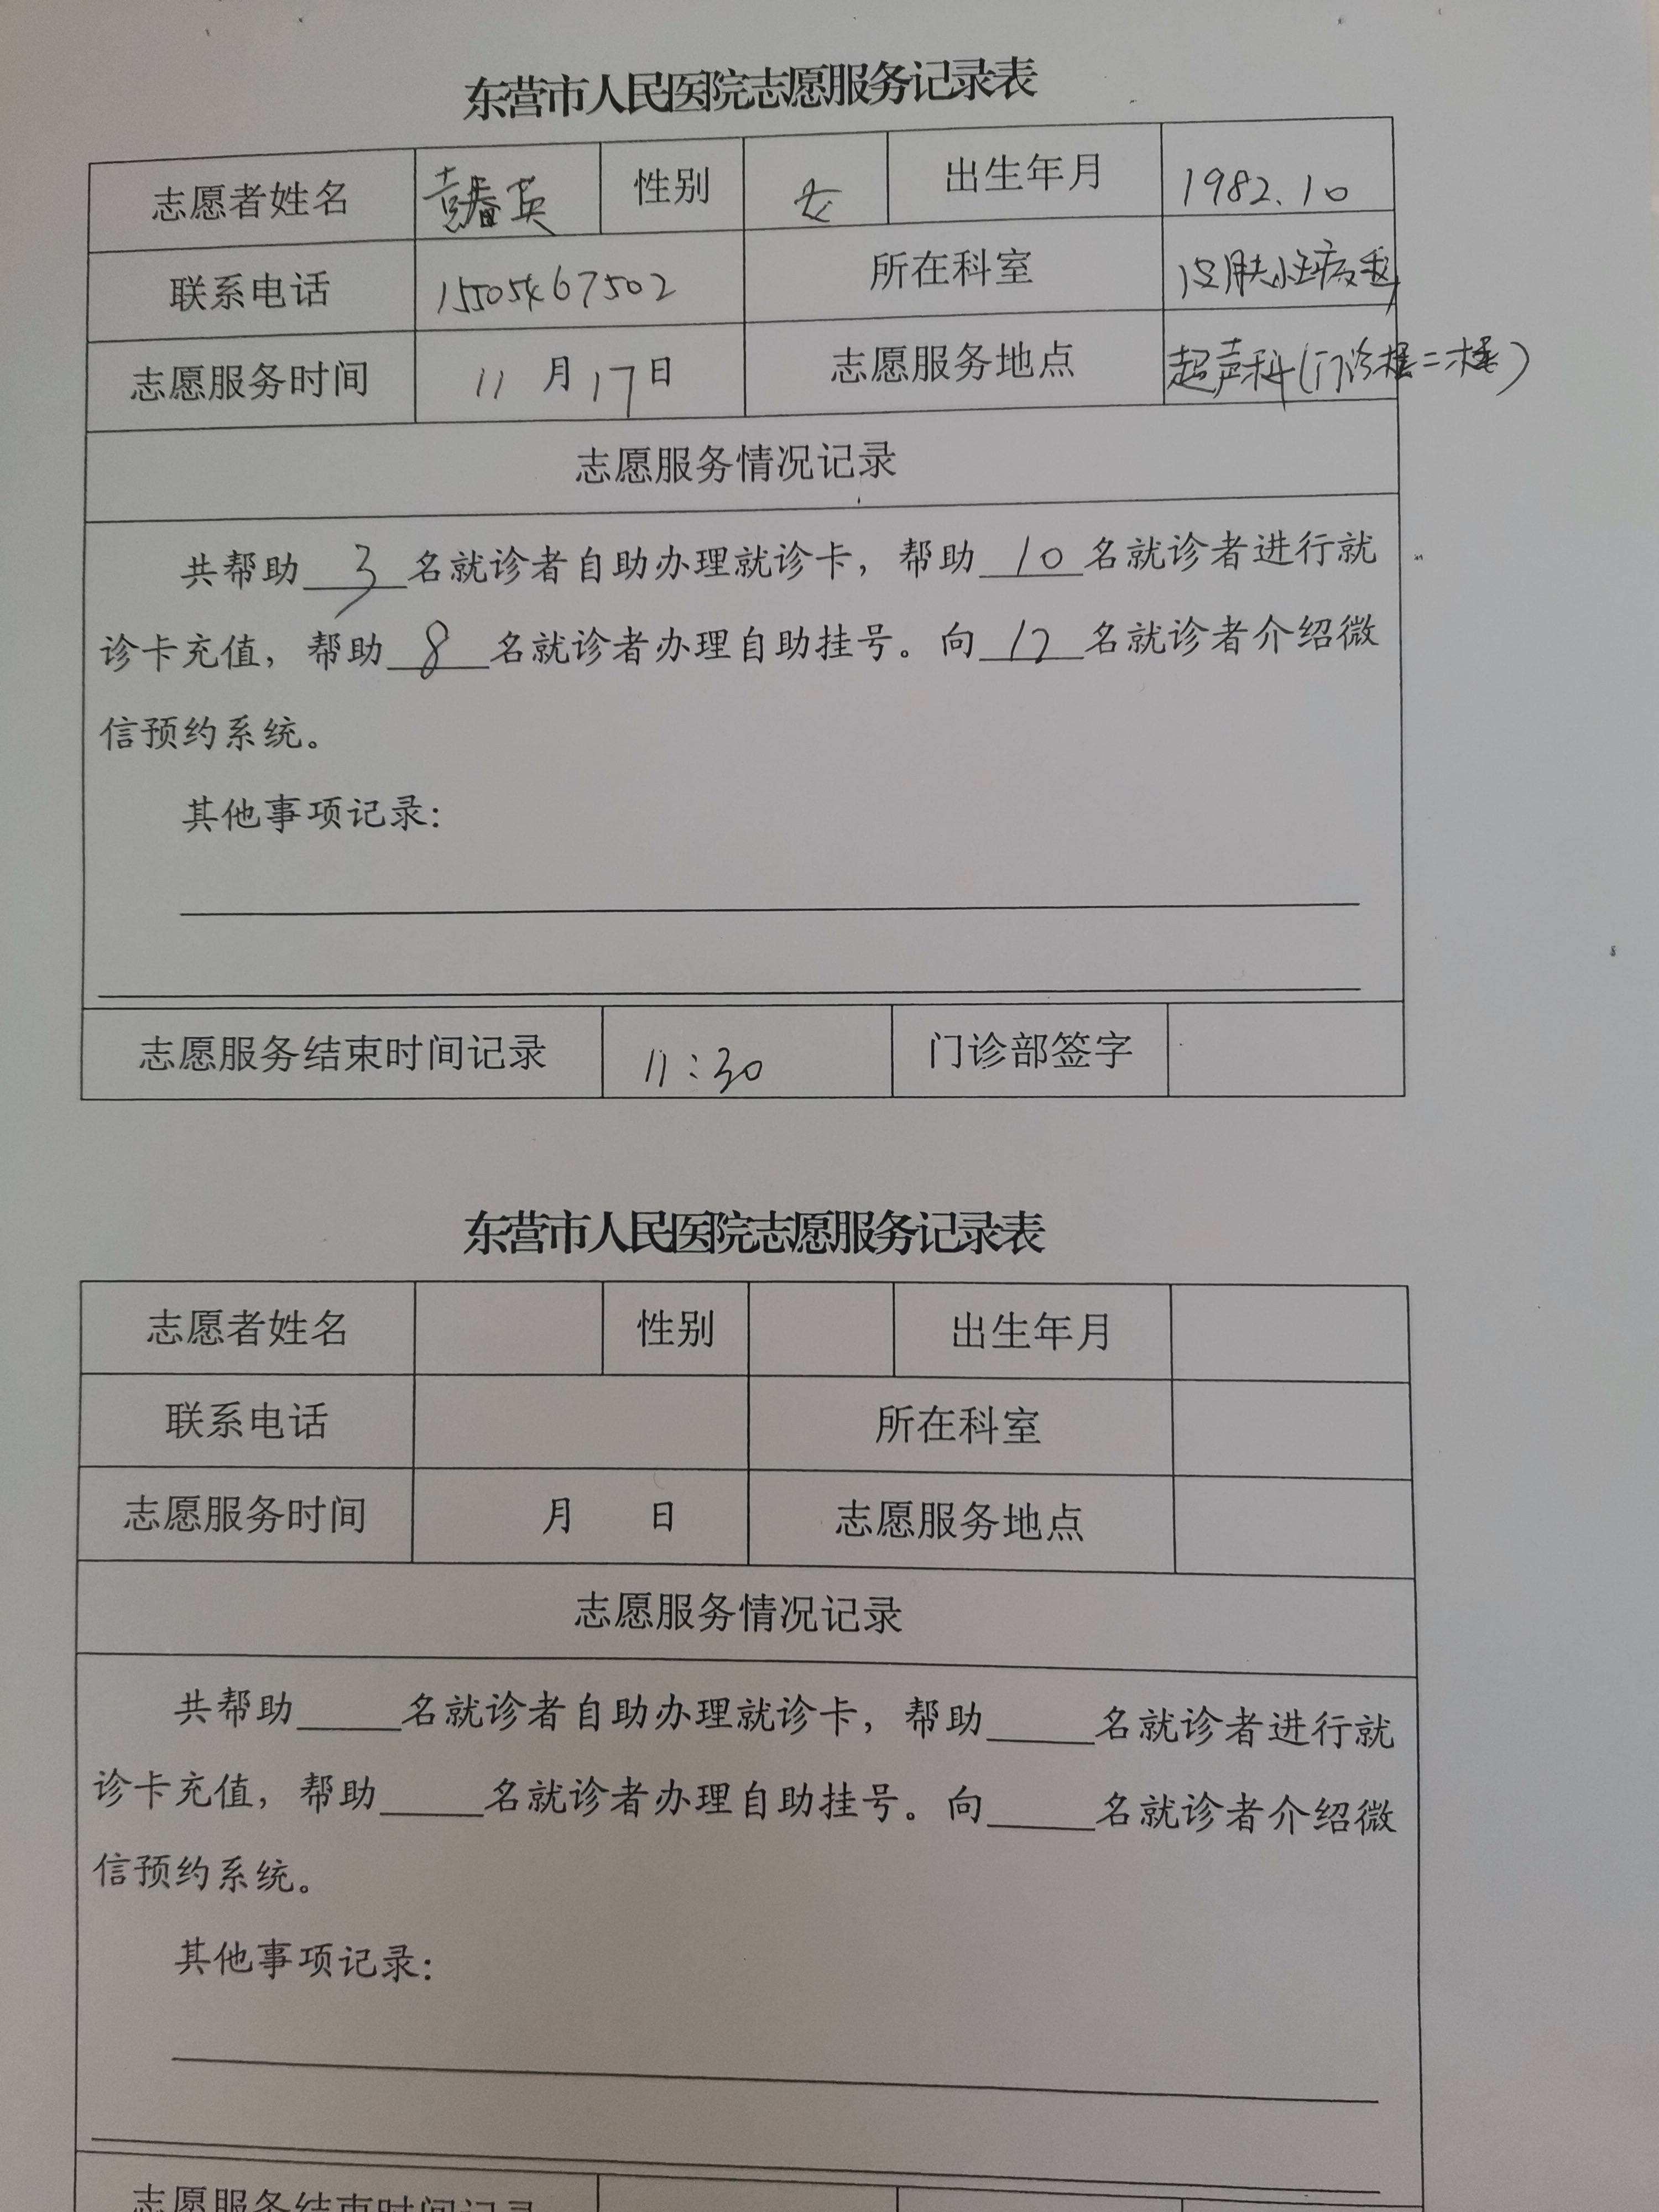 东营市人民医院志愿服务记录表
志愿者姓名 英 性别 女 出生年月 1982.10
联系电话 15505467502 所在科室 皮肤性病科
志愿服务时间 11月17日 志愿服务地点 超声科(门诊楼二楼)
志愿服务情况记录
共帮助3名就诊者自助办理就诊卡，帮助10名就诊者进行就
诊卡充值，帮助8名就诊者办理自助挂号。向12名就诊者介绍微
信预约系统。
其他事项记录：
志愿服务结束时间记录 11:30 门诊部签字
东营市人民医院志愿服务记录表
志愿者姓名 性别 出生年月
联系电话 所在科室
志愿服务时间 月 日 志愿服务地点
志愿服务情况记录
共帮助_____名就诊者自助办理就诊卡，帮助_____名就诊者进行就
诊卡充值，帮助_____名就诊者办理自助挂号。向_____名就诊者介绍微
信预约系统。
其他事项记录：
志愿服务结束时间记录